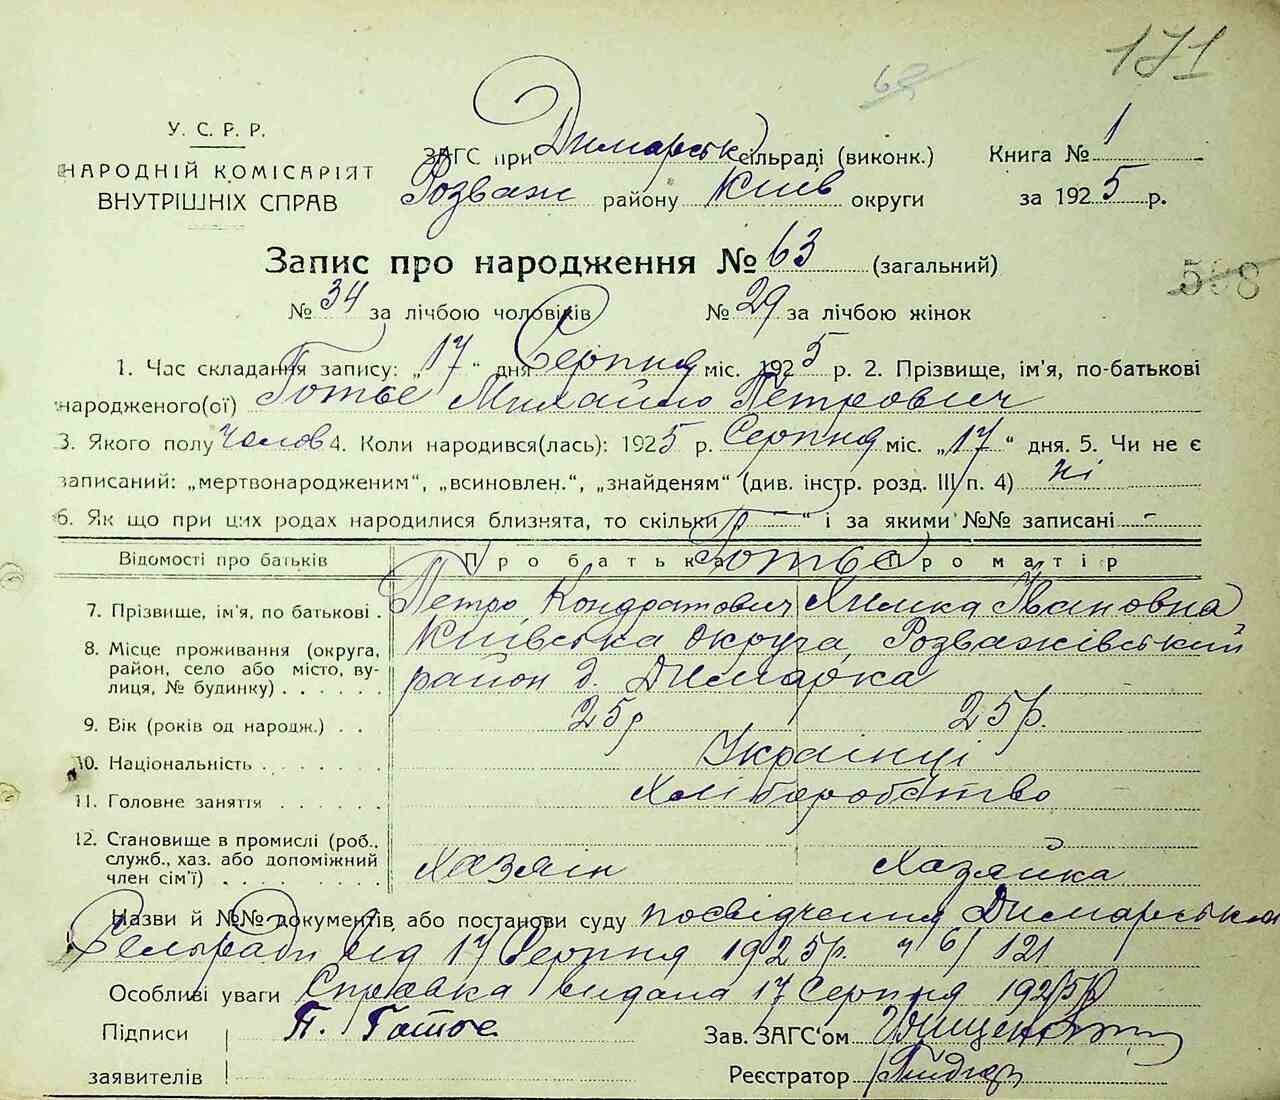 171
69
У. С. Р. Р.
НАРОДНІЙ КОМІСАРІЯТ
ВНУТРІШНІХ СПРАВ
ЗАГС при Димарськ сільраді (виконк.) Книга № 1
Розваж району Київ округи за 1925 р.
Запис про народження № 63 (загальний)
508
№ 34 за лічбою чоловіків № 29 за лічбою жінок
1. Час складання запису: „17“ дня Серпня міс. 1925 р. 2. Прізвище, ім'я, по-батькові
народженого(ої) Готье Михайло Петрович
3. Якого полу Чолов 4. Коли народився(лась): 1925 р. Серпня міс. „17“ дня. 5. Чи не є
записаний: „мертвонародженим“, „всиновлен.“, „знайденям“ (див. інстр. розд. III п. 4) ні
6. Як що при цих родах народилися близнята, то скільки „ — “ і за якими №№ записані -
Відомості про батьків Про батька Про матір
Готье
7. Прізвище, ім'я, по батькові . Петро Кондратович Химка Івановна
8. Місце проживання (округа, район, село або місто, вулиця, № будинку) . . . . . . Київська округа, Розважівський
район д. Димарка
9. Вік (років од народж.) . . 25р 25р.
10. Національність . . . . . . . Українці
11. Головне заняття . . . . . . Хліборобство
12. Становище в промислі (роб., служб., хаз. або допоміжний член сім'ї) . . . . . . . . Хазяін Хазяйка
Назви й №№ документів або постанови суду посвідчення Димарської
Сельради від 17 Серпня 1925р. ч 6/121
Особливі уваги Справка видана 17 Серпня 1925р
Підписи П. Готье Зав. ЗАГС'ом
заявителів Реєстратор